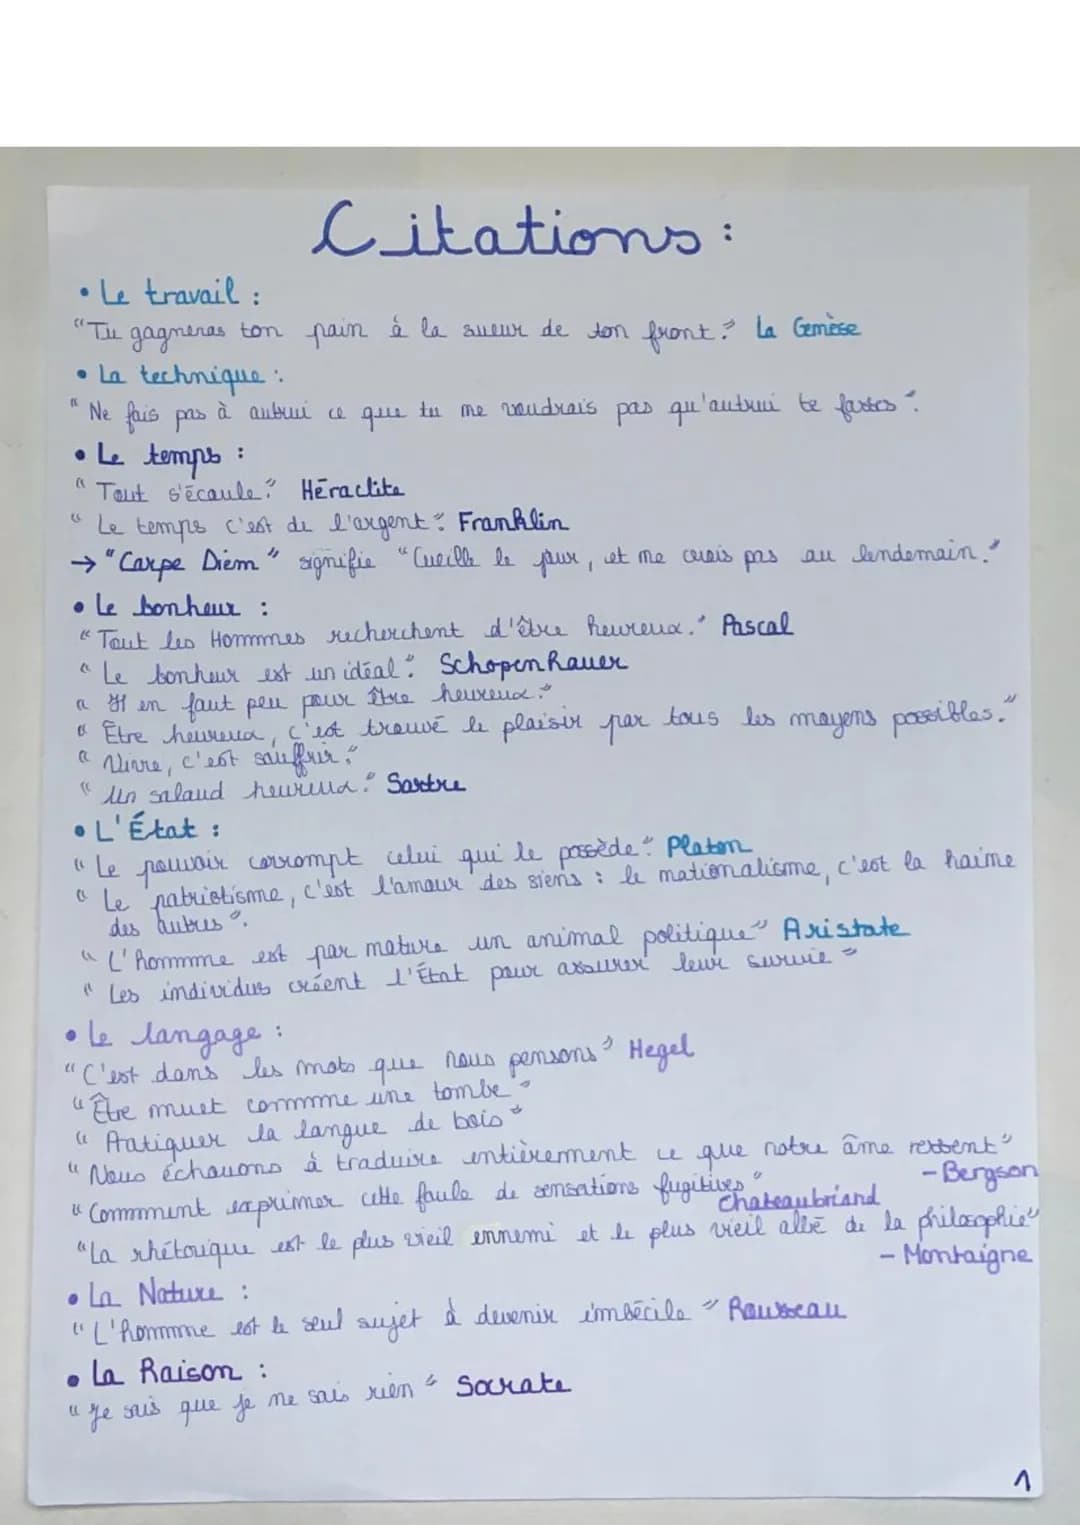 Citations :
• Le travail :
"Tu gagneras ton pain à la sueur de ton front." La Genèse
• La technique :
"Ne fais pas à autrui ce que tu ne voudrais pas qu'autrui te fasses".
• Le temps :
"Tout s'écoule." Héraclite
"Le temps c'est de l'argent". Franklin
→ "Carpe Diem" signifie "Cueille le jour, et ne crois pas au lendemain."
• Le bonheur :
"Tout les Hommes recherchent d'être heureux." Pascal
"Le bonheur est un idéal". Schopenhauer
"Il en faut peu pour être heureux."
"Être heureux, c'est trouvé le plaisir par tous les moyens possibles."
"Vivre, c'est souffrir."
"Un salaud heureux." Sartre
• L'État :
"Le pouvoir corrompt celui qui le possède". Platon
"Le patriotisme, c'est l'amour des siens : le nationalisme, c'est la haine
des autres".
"L'homme est par nature un animal politique" Aristote
"Les individus créent l'État pour assurer leur survie"
• Le langage :
"C'est dans les mots que nous pensons" Hegel
"Être muet comme une tombe"
"Pratiquer la langue de bois"
"Nous échouons à traduire entièrement ce que notre âme ressent"
- Bergson
"Comment exprimer cette foule de sensations fugitives"
Chateaubriand
"La rhétorique est le plus vieil ennemi et le plus vieil allié de la philosophie"
- Montaigne
• La Nature :
"L'homme est le seul sujet à devenir imbécile" Rousseau
• La Raison :
"Je sais que je ne sais rien" Socrate
1